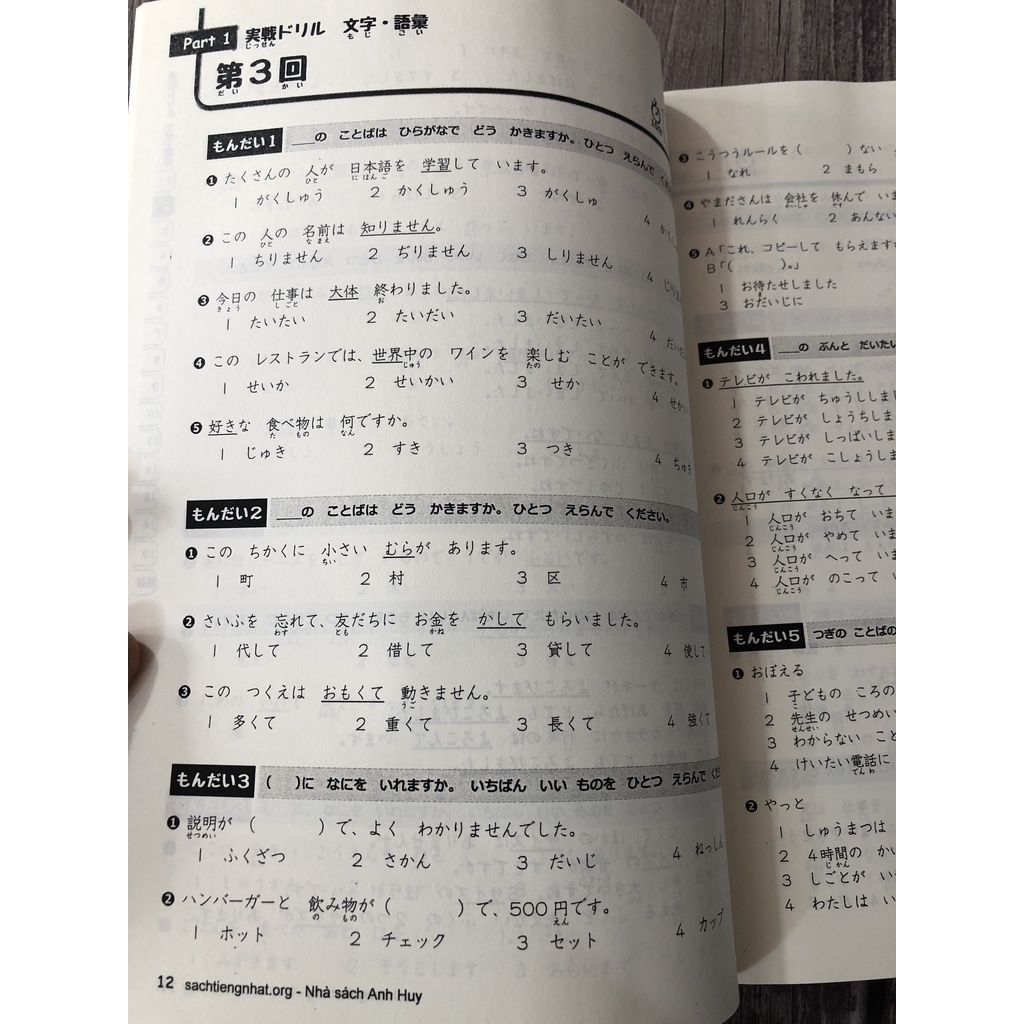 Part 1 実戦ドリル 文字・語彙
じっせん もじ ごい
第3回
だい かい
もんだい1 ＿＿の ことばは ひらがなで どう かきますか。ひとつ えらんで
❶ たくさんの 人が 日本語を 学習して います。
ひと にほんご
1 がくしゅう 2 かくしゅう 3 がくしゅ 4
❷ この 人の 名前は 知りません。
ひと なまえ
1 ちりません 2 ぢりません 3 しりません 4
❸ 今日の 仕事は 大体 終わりました。
きょう しごと お
1 たいたい 2 たいだい 3 だいたい 4
❹ この レストランでは、世界中の ワインを 楽しむ ことが できます。
じゅう たの
1 せいか 2 せいかい 3 せか 4 せかい
❺ 好きな 食べ物は 何ですか。
た もの なん
1 じゅき 2 すき 3 つき 4 ちゅき
もんだい2 ＿＿の ことばは どう かきますか。ひとつ えらんで ください。
❶ この ちかくに 小さい むらが あります。
ちい
1 町 2 村 3 区 4 市
❷ さいふを 忘れて、友だちに お金を かして もらいました。
わす とも かね
1 代して 2 借して 3 貸して 4 使して
❸ この つくえは おもくて 動きません。
うご
1 多くて 2 重くて 3 長くて 4 強くて
もんだい3 （ ）に なにを いれますか。 いちばん いい ものを ひとつ えらんで
❶ 説明が （ ）で、よく わかりませんでした。
せつめい
1 ふくざつ 2 さかん 3 だいじ 4 ねっしん
❷ ハンバーガーと 飲み物が（ ）で、500円です。
の もの えん
1 ホット 2 チェック 3 セット 4 カップ
12 sachtiengnhat.org - Nhà sách Anh Huy
❸ こうつうルールを（ ）ない
1 なれ 2 まもら
❹ やまださんは 会社を 休んで
かいしゃ やす
1 れんらく 2 あんない
❺ A「これ、コピーして もらえますか
B「（ ）。」
1 お待たせしました
ま
3 おだいじに
もんだい4 ＿＿の ぶんと だいたい
❶ テレビが こわれました。
1 テレビが ちゅうししまし
2 テレビが しょうちしま
3 テレビが しっぱいしま
4 テレビが こしょうしま
❷ 人口が すくなく なって
じんこう
1 人口が おちて いま
じんこう
2 人口が やめて いま
じんこう
3 人口が へって いま
じんこう
4 人口が のこって いま
じんこう
もんだい5 つぎの ことばの
❶ おぼえる
1 子どもの ころの
こ
2 先生の せつめい
せんせい
3 わからない こと
4 けいたい電話に
でんわ
❷ やっと
1 しゅうまつは
2 4時間の かい
じかん
3 しごとが い
4 わたしは い